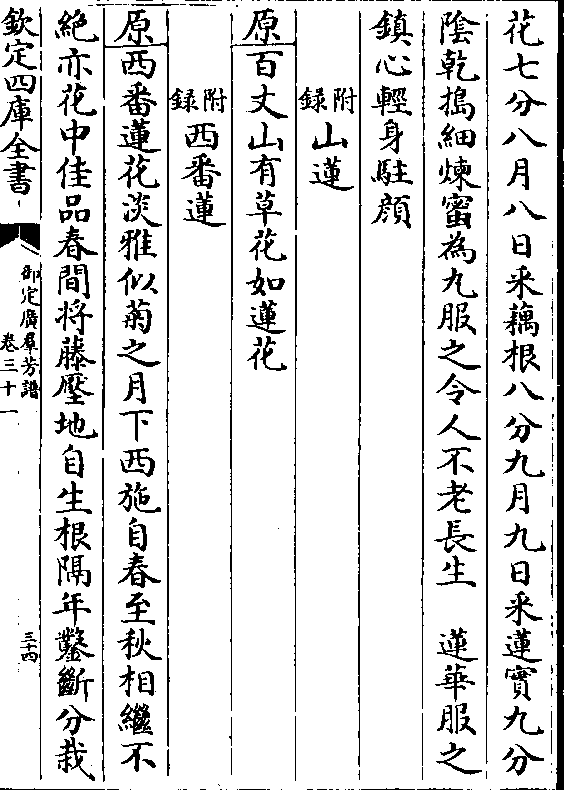 花七分八月八日采藕根八分九月九日采蓮實九分
陰乾搗細煉蜜為丸服之令人不老長生　蓮華服之
鎮心輕身駐顔
附録 山蓮
原 百丈山有草花如蓮花
附録 西番蓮
原 西番蓮花淡雅似菊之月下西施自春至秋相繼不
絶亦花中佳品春間将藤壓地自生根隔年鑿斷分栽
欽定四庫全書
御定廣羣芳譜
卷三十一
三十四